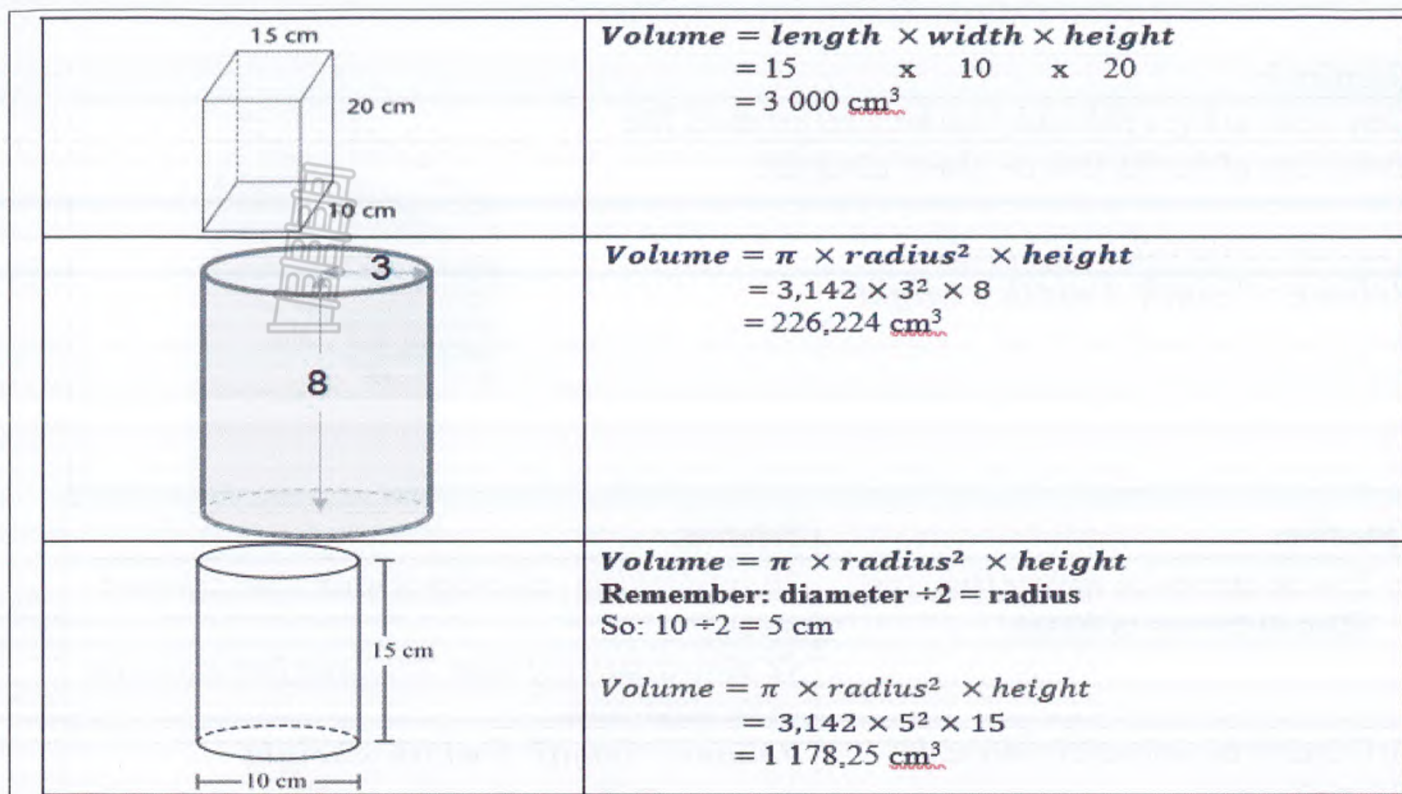 15 cm
20 cm
10 cm
Volume = length × width × height
= 15 x 10 x 20
= 3 000 cm³
3
8
Volume = π × radius² × height
= 3,142 × 3² × 8
= 226,224 cm³
15 cm
10 cm
Volume = π × radius² × height
Remember: diameter ÷2 = radius
So: 10 ÷2 = 5 cm
Volume = π × radius² × height
= 3,142 × 5² × 15
= 1 178,25 cm³